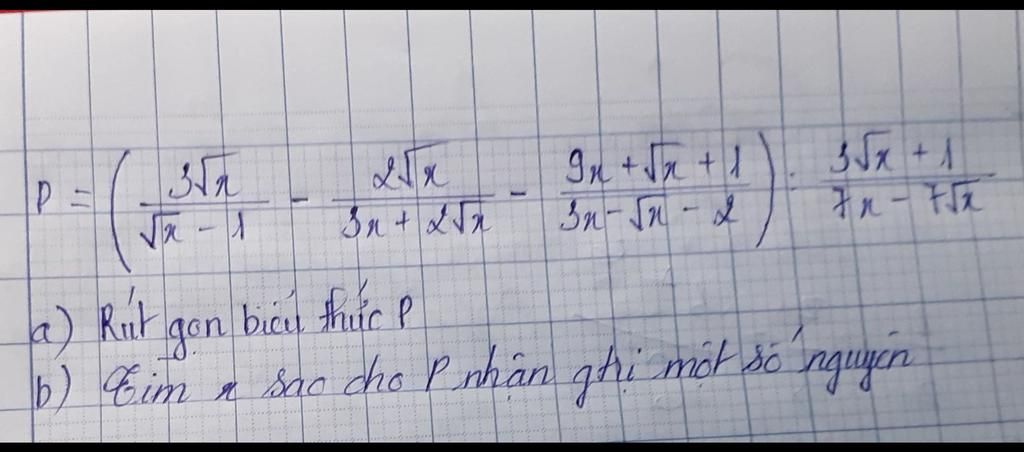 P = ( 3√x / (√x - 1) - 2√x / (3x + 2√x) - (9x + √x + 1) / (3x - √x - 2) ) : (3√x + 1) / (7x - 7√x)
a) Rút gọn biểu thức P
b) Tìm x sao cho P nhận ghi một số nguyên